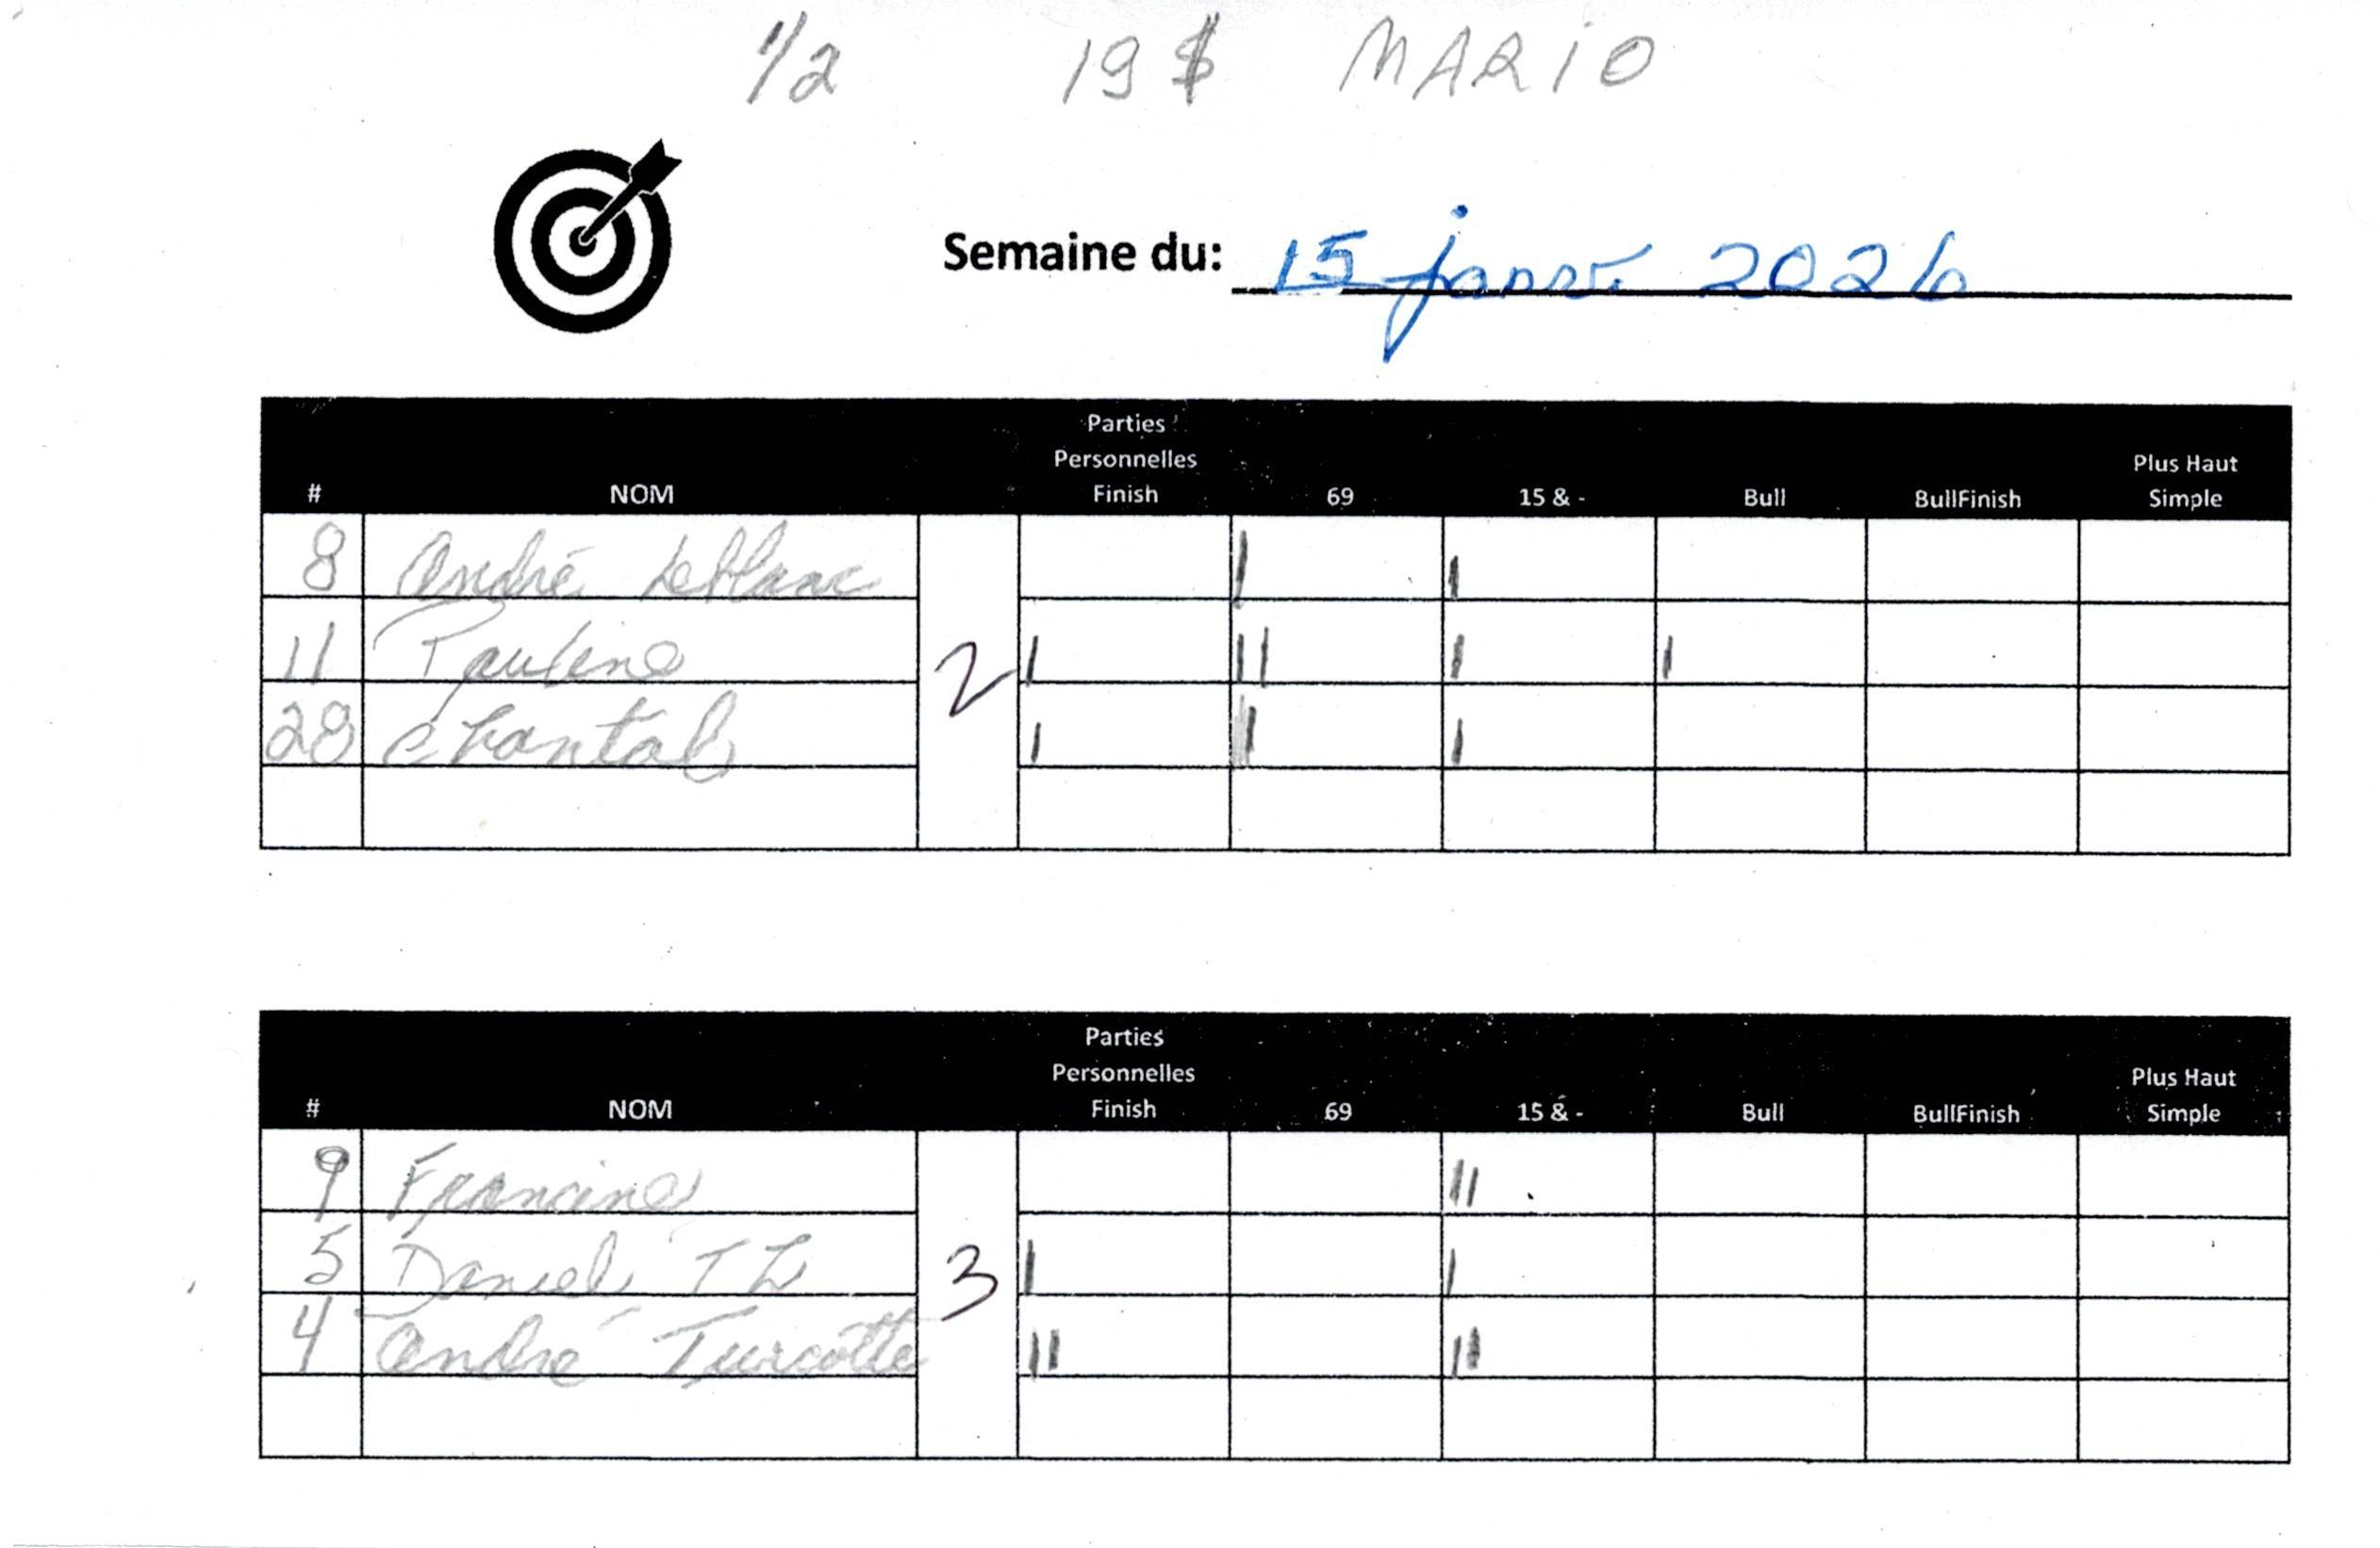 1/2 19$ MARIO
Semaine du: 15 janv. 2026
# NOM Parties Personnelles Finish 69 15 & - Bull BullFinish Plus Haut Simple
8 André Leblanc | |
11 Pauline 2 | || | |
28 Chantal | | |
# NOM Parties Personnelles Finish 69 15 & - Bull BullFinish Plus Haut Simple
9 Francine ||
5 Daniel TL 3 | |
4 André Turcotte || ||